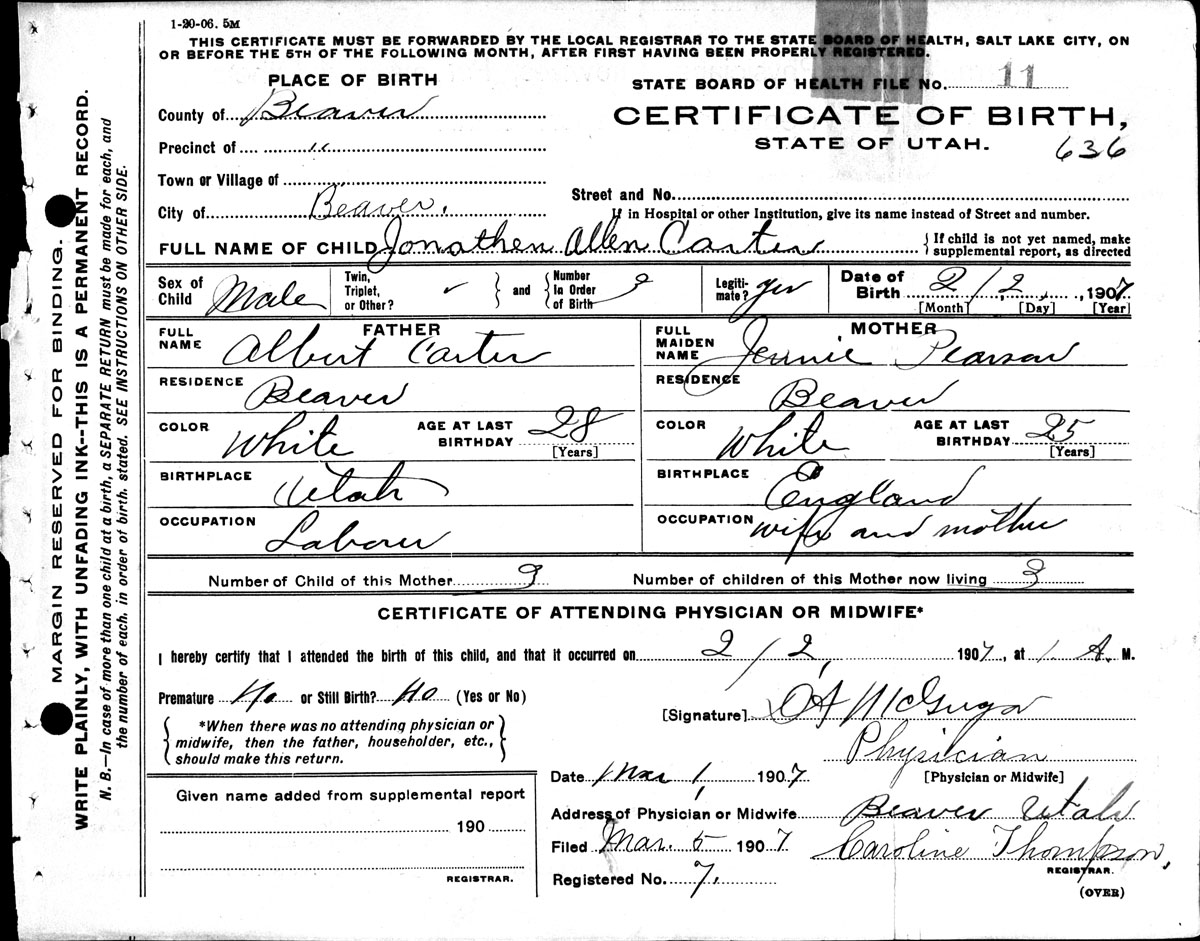 1-20-06. 5M
THIS CERTIFICATE MUST BE FORWARDED BY THE LOCAL REGISTRAR TO THE STATE BOARD OF HEALTH, SALT LAKE CITY, ON
OR BEFORE THE 5TH OF THE FOLLOWING MONTH, AFTER FIRST HAVING BEEN PROPERLY REGISTERED.
PLACE OF BIRTH
STATE BOARD OF HEALTH FILE No. 11
County of Beaver
CERTIFICATE OF BIRTH,
STATE OF UTAH.
636
Precinct of "
Town or Village of
City of Beaver.
Street and No.
If in Hospital or other Institution, give its name instead of Street and number.
FULL NAME OF CHILD Jonathen Allen Carter { If child is not yet named, make
supplemental report, as directed
Sex of Child Male
Twin, Triplet, or Other? ✓ } and { Number In Order of Birth 3
Legiti-mate? yes
Date of Birth 2/2, 1907
[Month] [Day] [Year]
FATHER
FULL NAME Albert Carter
RESIDENCE Beaver
COLOR White AGE AT LAST BIRTHDAY 28
[Years]
BIRTHPLACE Utah
OCCUPATION Labour
MOTHER
FULL MAIDEN NAME Jennie Pearson
RESIDENCE Beaver
COLOR White AGE AT LAST BIRTHDAY 25
[Years]
BIRTHPLACE England
OCCUPATION wife and mother
Number of Child of this Mother 3 Number of children of this Mother now living 3
CERTIFICATE OF ATTENDING PHYSICIAN OR MIDWIFE*
I hereby certify that I attended the birth of this child, and that it occurred on 2/2, 1907, at 1 A. M.
Premature No or Still Birth? No (Yes or No)
{ *When there was no attending physician or
midwife, then the father, householder, etc.,
should make this return. }
[Signature]
Physician
[Physician or Midwife]
Date Mar 1, 1907
Given name added from supplemental report
190
REGISTRAR.
Address of Physician or Midwife Beaver Utah
Filed Mar. 5 1907 Caroline Thompson,
REGISTRAR.
Registered No. 7.
(OVER)
MARGIN RESERVED FOR BINDING.
WRITE PLAINLY, WITH UNFADING INK--THIS IS A PERMANENT RECORD.
N. B.—In case of more than one child at a birth, a SEPARATE RETURN must be made for each, and
the number of each, in order of birth, stated. SEE INSTRUCTIONS ON OTHER SIDE.